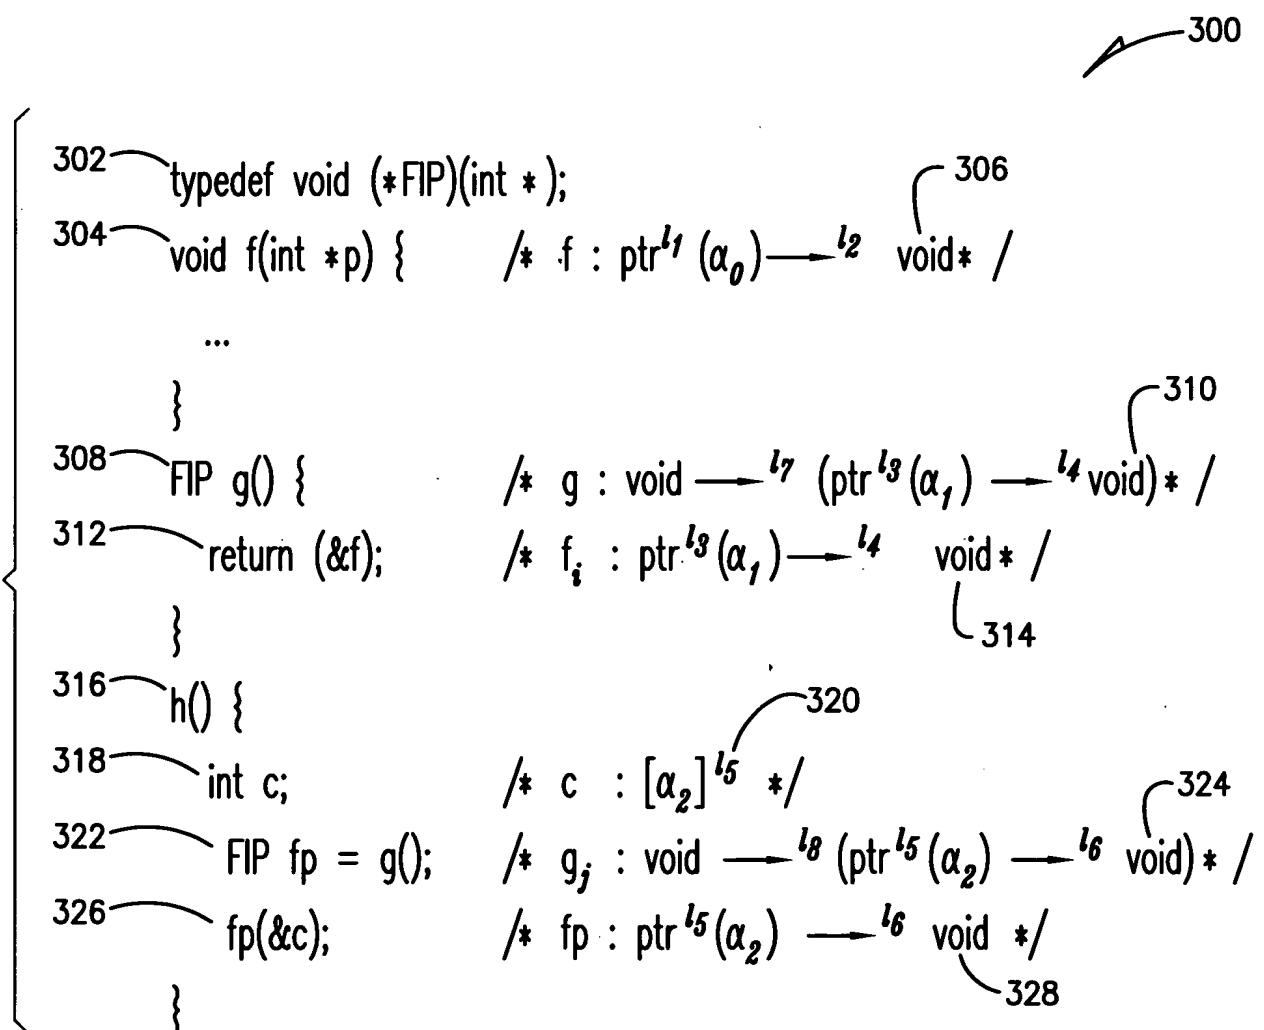 300
302 typedef void (*FIP)(int *); 306
304 void f(int *p) { /* f : ptr^l1 (α0) ⟶^l2 void* /
...
} 310
308 FIP g() { /* g : void ⟶^l7 (ptr^l3 (α1) ⟶^l4 void)* /
312 return (&f); /* fi : ptr^l3 (α1) ⟶^l4 void* /
} 314
316 h() { 320
318 int c; /* c : [α2]^l5 */ 324
322 FIP fp = g(); /* gj : void ⟶^l8 (ptr^l5 (α2) ⟶^l6 void)* /
326 fp(&c); /* fp : ptr^l5 (α2) ⟶^l6 void */
} 328